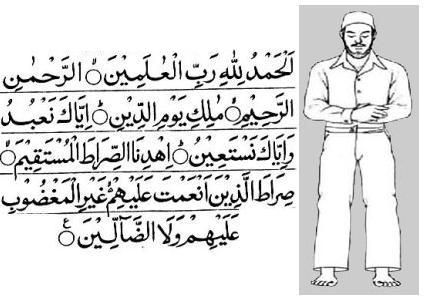 اَلْحَمْدُ لِلّٰهِ رَبِّ الْعٰلَمِيْنَ ۙ الرَّحْمٰنِ
الرَّحِيْمِ ۙ مٰلِكِ يَوْمِ الدِّيْنِ ؕ اِيَّاكَ نَعْبُدُ
وَاِيَّاكَ نَسْتَعِيْنُ ؕ اِهْدِنَا الصِّرَاطَ الْمُسْتَقِيْمَ ۙ
صِرَاطَ الَّذِيْنَ اَنْعَمْتَ عَلَيْهِمْ ۙ غَيْرِ الْمَغْضُوْبِ
عَلَيْهِمْ وَلَا الضَّآلِّيْنَ ع